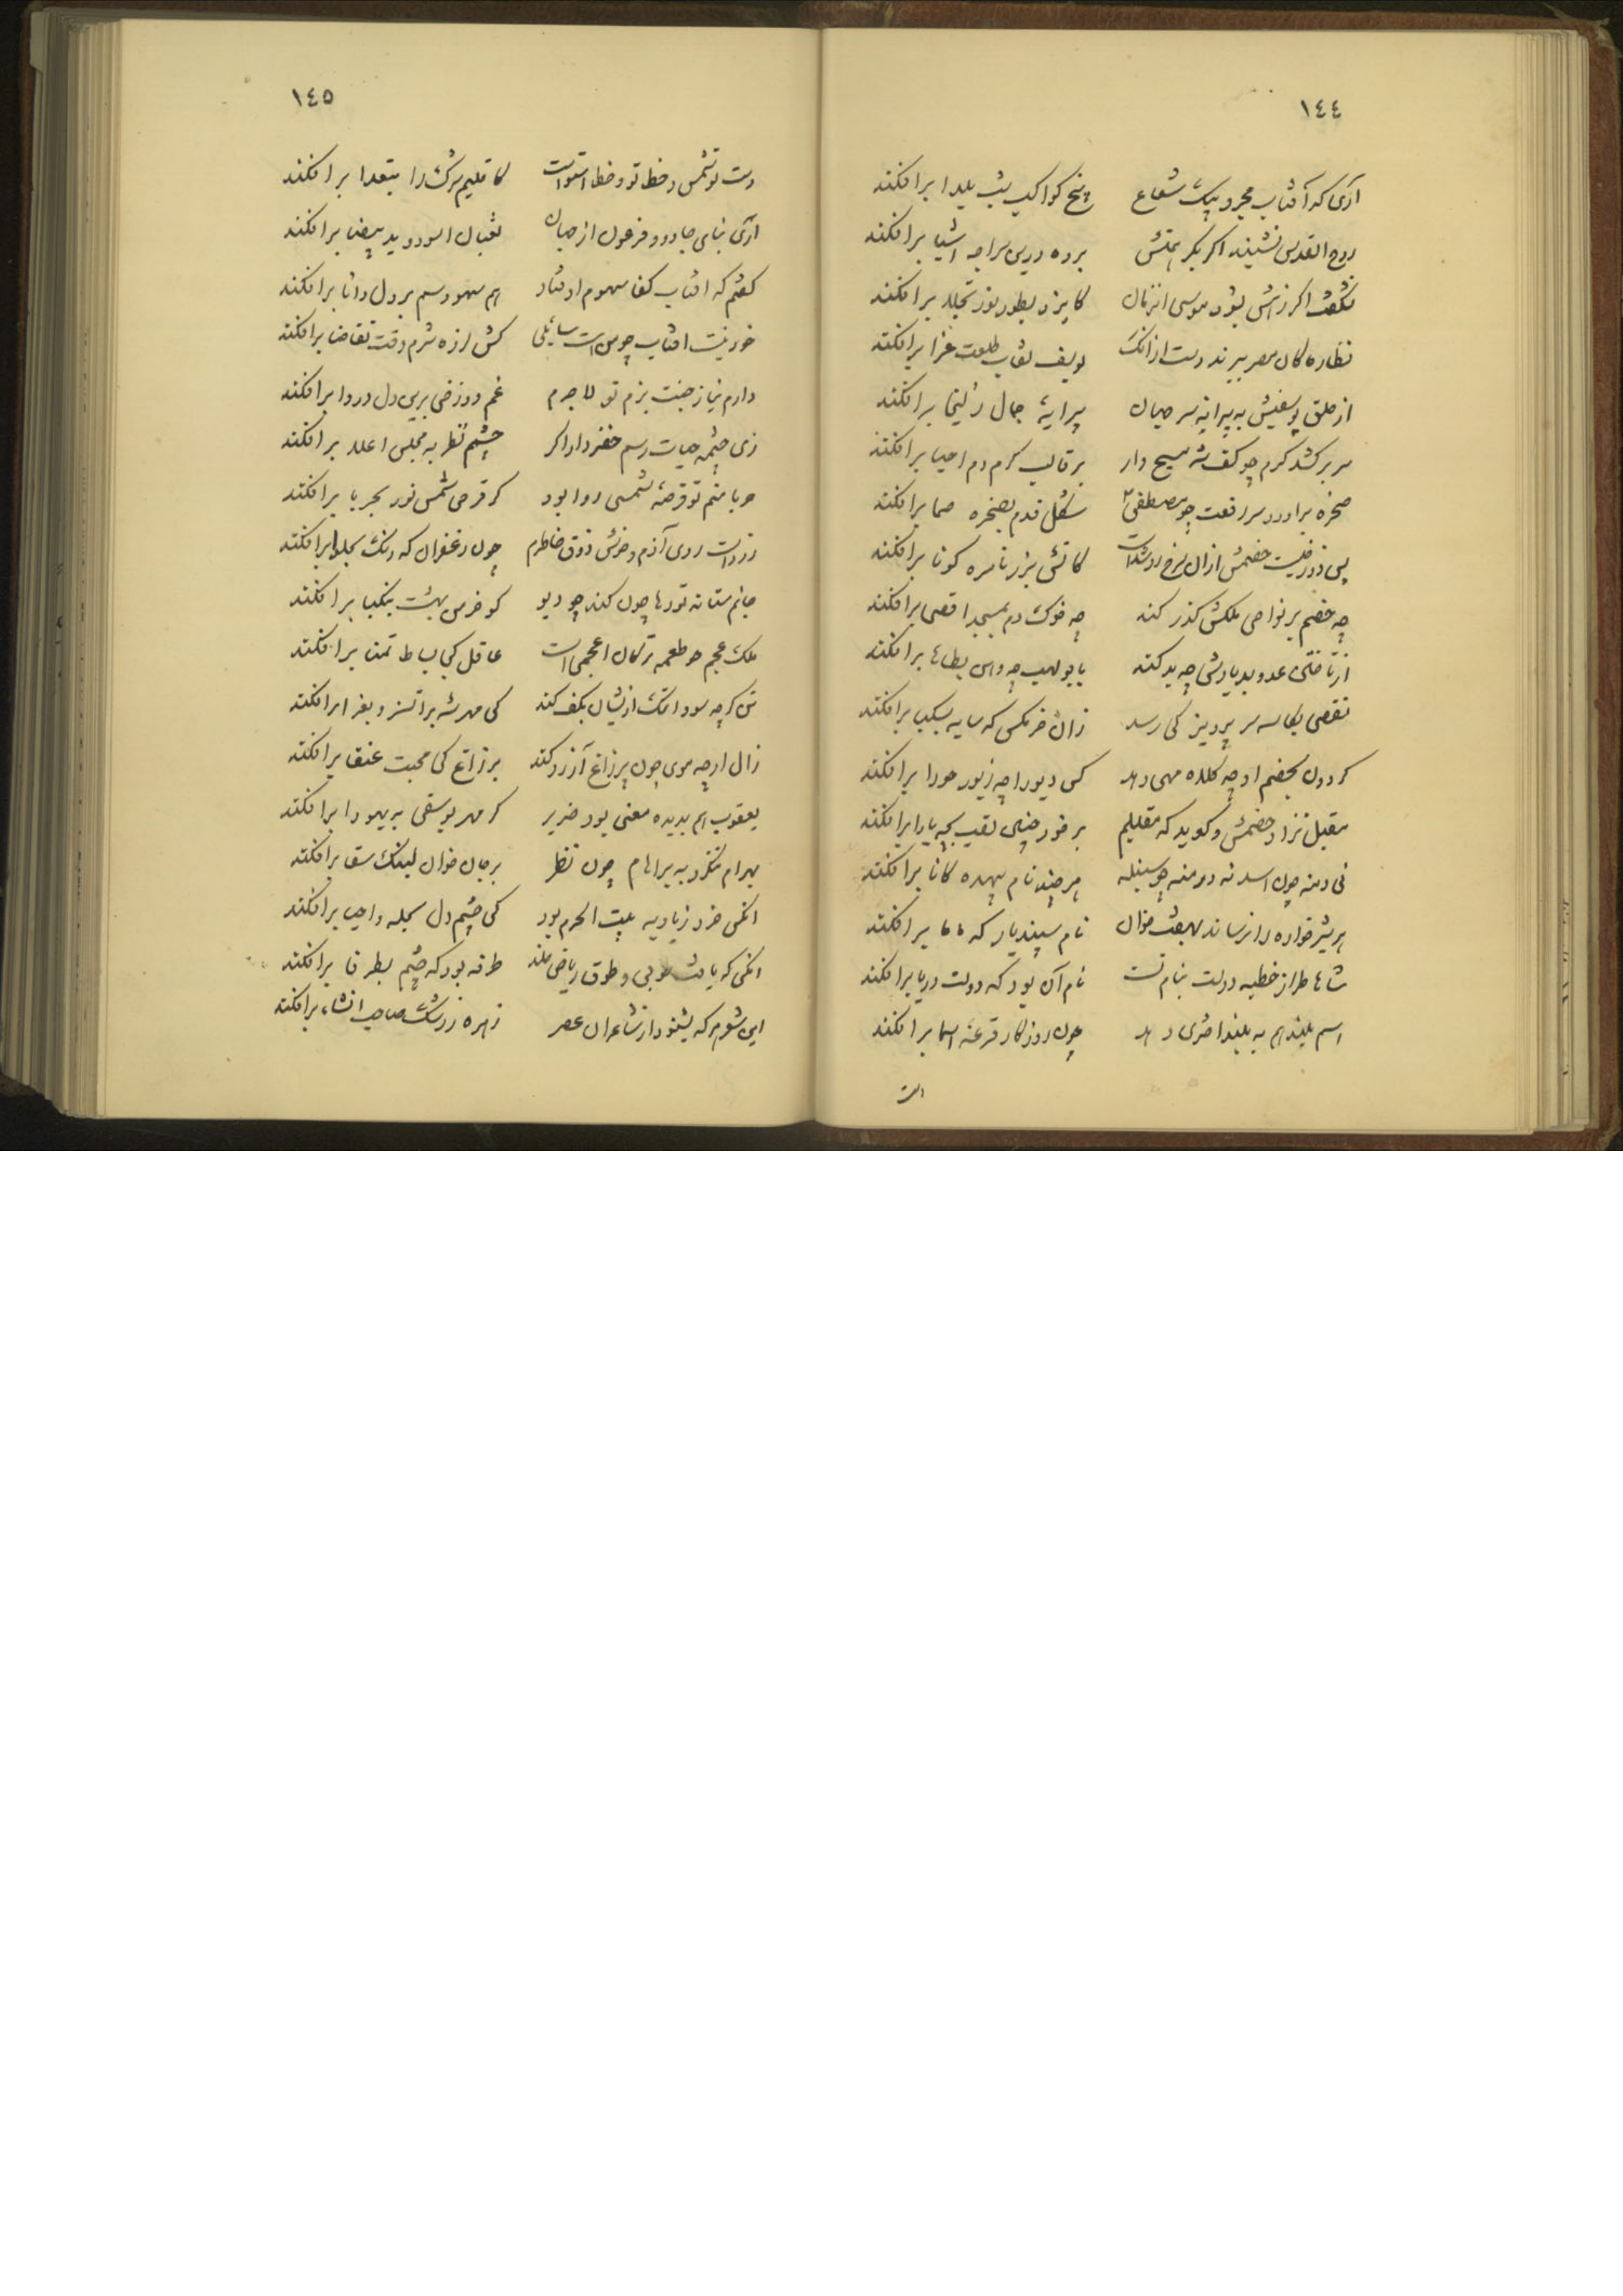 ١٤٤
آری که آفتاب مجرد بیک شعاع پنج کواکب شب یلدا برافکند
روح القدس نشیند اگر بکر همتش پرده درین سراچه اشیا برافکند
شگفت اگر زهش بشود موسی آنزمان کایزد بطور نور تجلد برافکند
نظاره کان مصر ببرند دست از آنک یوسف نقاب طلعت غرا برافکند
از خلق یوسفیش به پیرانه سر جهان پیرایه جمال زلیخا برافکند
سر برکشد کرم چو کف شه مسیح وار بر قالب کرم دم احیا برافکند
صخره برآورد سر رفعت چو مصطفی شکل قدم بصخره صما برافکند
پی دوزخیست خصمش ازان سرخ رو شدست کاتش بزر ناسره گونا برافکند
چه خصم بر نواحی ملکش گذر کند چه خوک دم بمسجد اقصی برافکند
از تاختن عدو بدیارش چه بد کند با بولهب چه واس بطاها برافکند
نقصی بکاسه سر پرویز کی رسد زان خرمگس که سایه بسکبا برافکند
گردون بخصم او چه کلاه مهی دهد کس دیو را چه زیور حورا برافکند
مقبل نزاد خصمش و گوید که مقبلیم بر خود چنین لقب بچه یارا برافکند
نی دمنه چون اسد نه درمنه چو سنبله هر چند نام بیهده کانا برافکند
هر شیرخواره را نرساند بهفت خوان نام سپندیار که ماما برافکند
شاها طراز خطبه دولت بنام تست نام آن بود که دولت دریا برافکند
اسم بلند هم به بلند اختری دهد چون روزگار قرعه اسما برافکند
دست
١٤٥
دست تو شمس و خط تو و خط استواست کاقلیم شرک را بتعدا برافکند
آری بنای جادو و فرعون از جهان ثعبان اسود و ید بیضا برافکند
گفتم که آفتاب کفا سهوم اوفتاد هم سهو رسم بر دل دانا برافکند
خود نیست آفتاب چو من است سائلی کش لرزه شرم وقت تقاضا برافکند
دارم نیاز جنت بزم تو لاجرم غم دوزخی برین دل دروا برافکند
زی چشمه حیات رسم خضروار اگر چشمم نظر به مجلس اعلا برافکند
حربا منم تو قرصه شمسی روا بود گر قرص شمس نور بحربا برافکند
زرداست روی آزم و خوش ذوق خاطرم چون زعفران که رنگ بحلوا برافکند
جانم ستانه تو رها چون کند چو دیو کو خرس بهشت بنکبا برافکند
ملک عجم چو طعمه ترکان اعجمی است عاقل کجا بساط تمنا برافکند
تن گرچه سو و اتمک ازیشان بکف کند کی مهر شه بر اتسز و بغرا برافکند
زال ارچه موی چون پر زاغ آرزو کند بر زاغ کی محبت عنقا برافکند
یعقوب هم بدیده معنی بود ضریر گر مهر یوسفی به یهودا برافکند
بهرام ننگرد به براهام چون نظر بر خان خوان لنبک سقا برافکند
آنکس خرد زیادیه بیت الحرم بود کی چشم دل بحله و احیا برافکند
آنکس که یافت طوبی و طوق ریاض خلد طرفه بود که چشم بطرفا برافکند
این شعر هر که بشنود از شاعران عصر زهره ز رشک صاحب انشاء برافکند